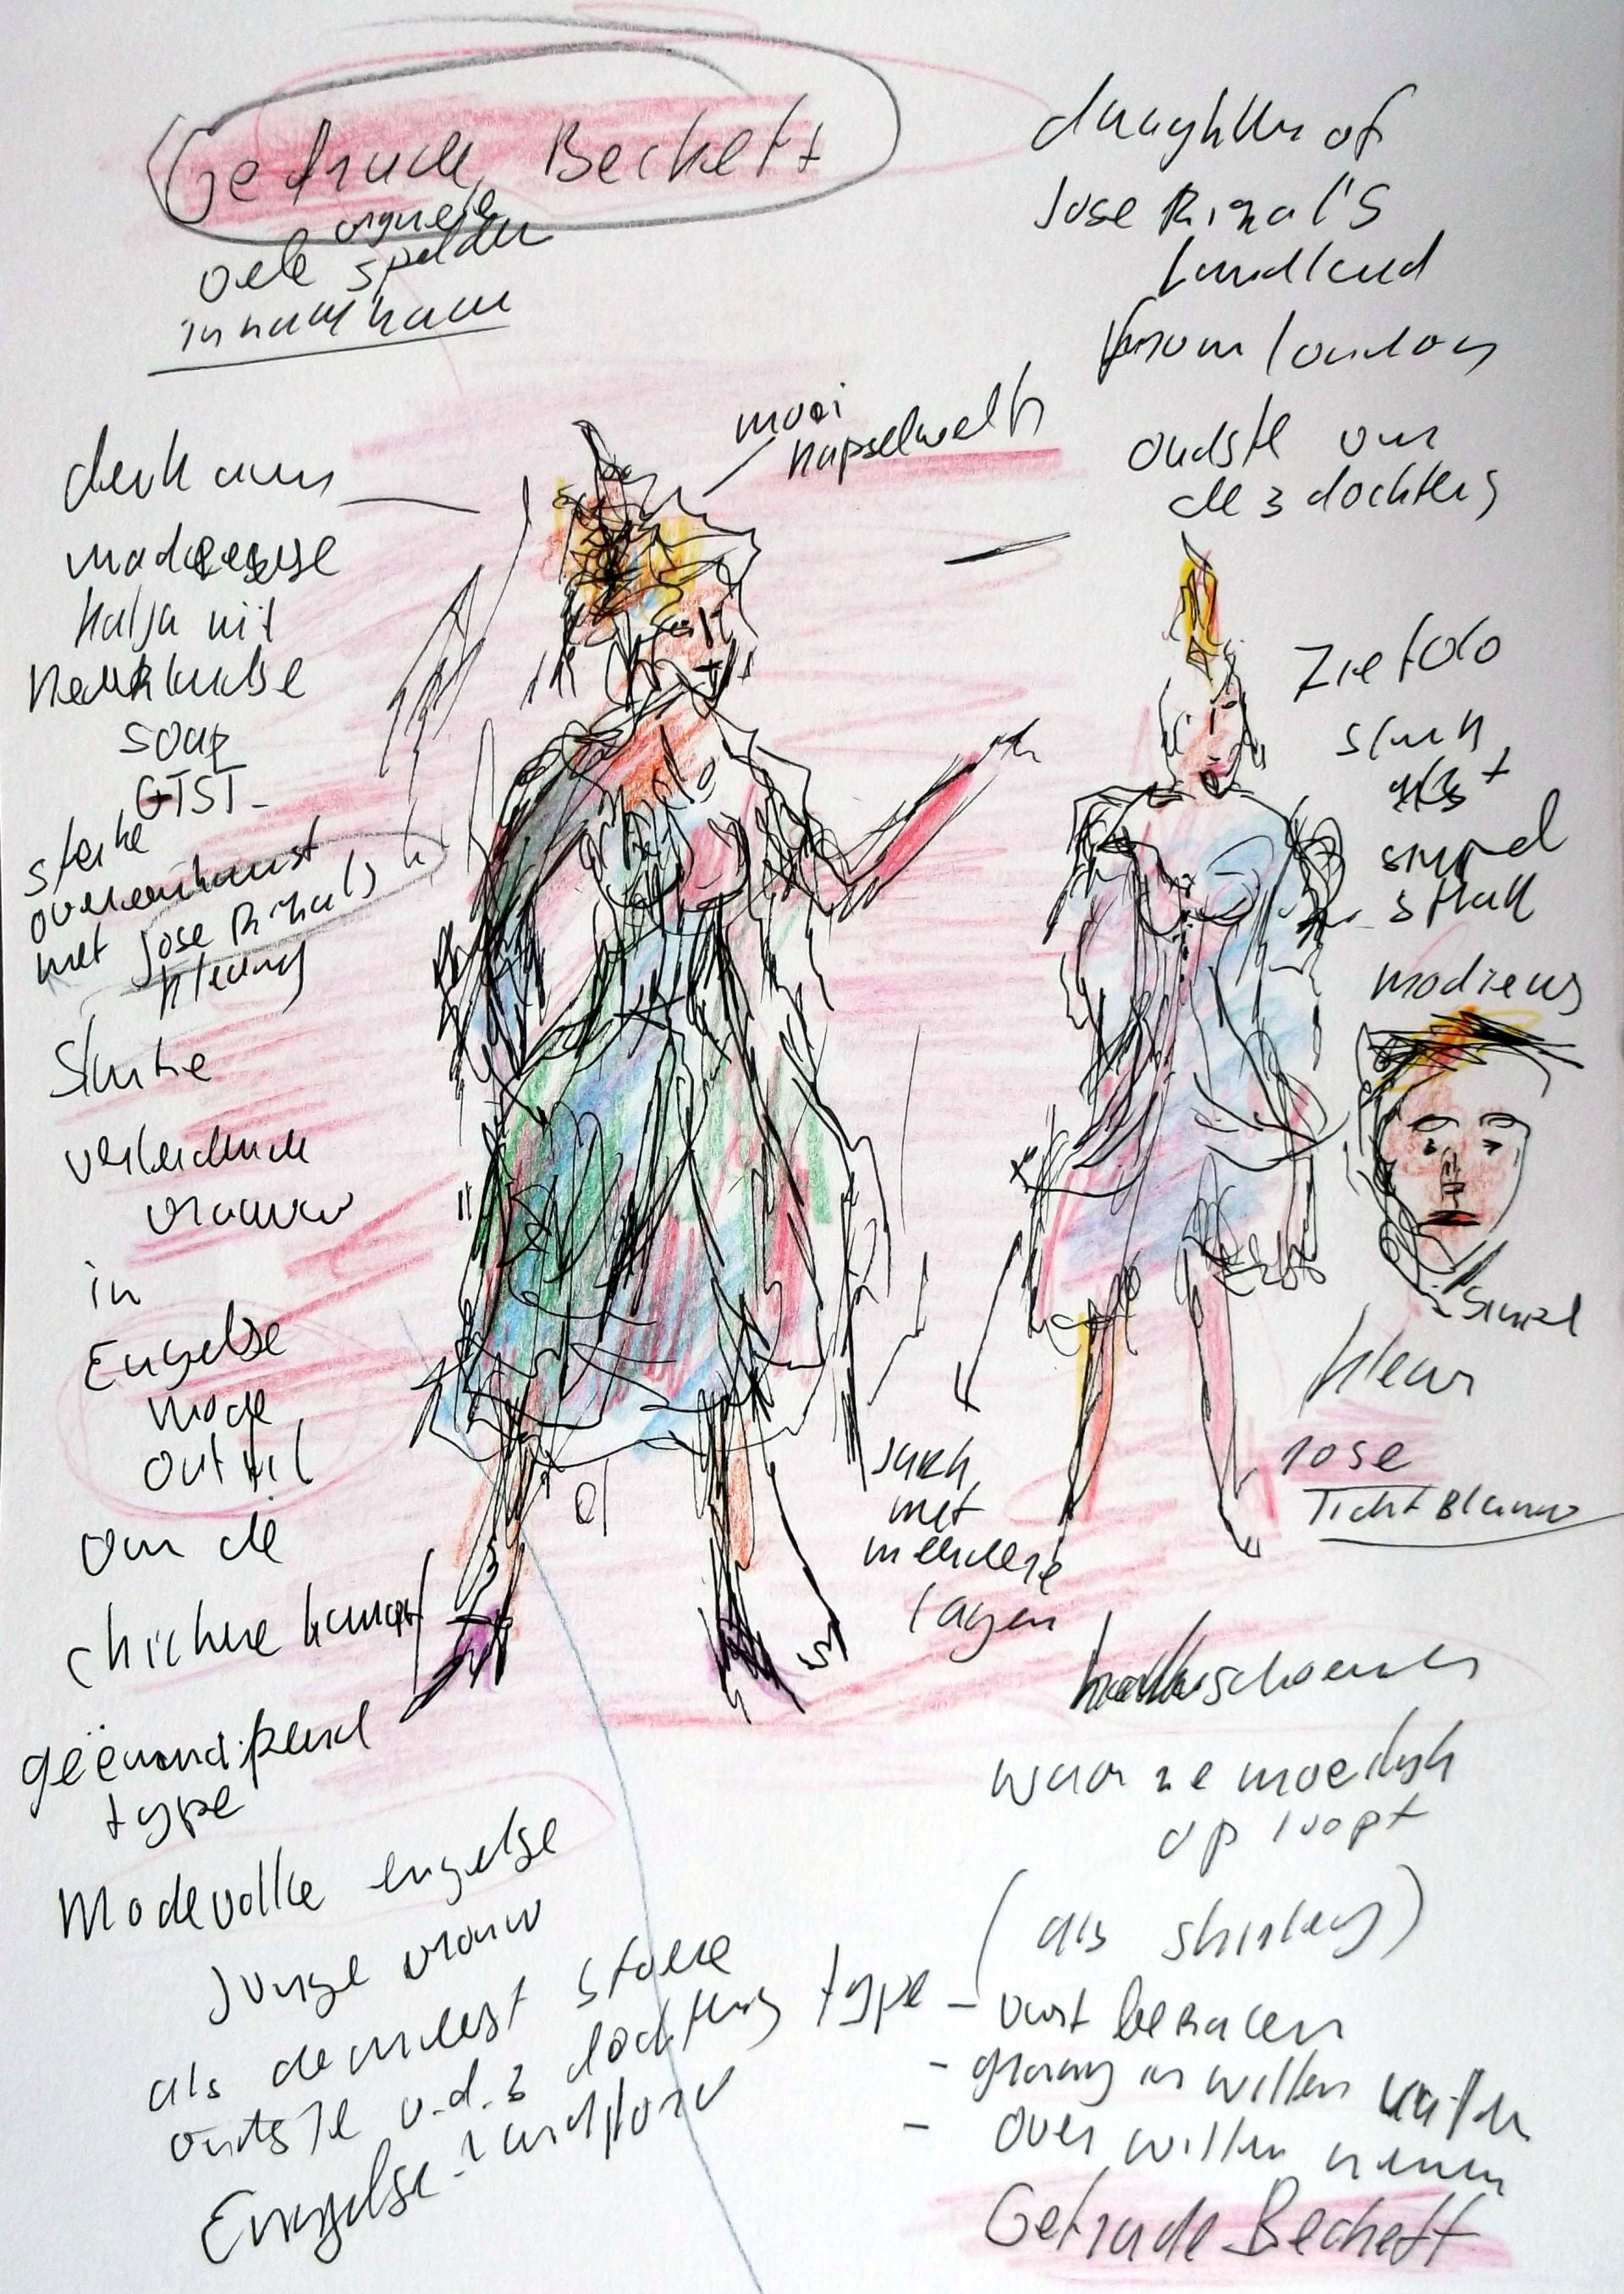 Getrude Beckett
vele
spelden
in haar haar
daughter of
Jose Rizal's
Landlord
from London
mooi
kapselwelk
oudste van
de 3 dochters
denk aan
Katja uit
soap
GTST
sterke
overeenkomst
met Jose Rizals
kleding
Slanke
verleidende
vrouw
in
Engelse
mode
outfit
van de
chichere
geëmancipeerd
type
Modevolle engelse
jonge vrouw
als de meest stoere
oudste v.d. 3 dochters type
Engelse landlord
Zie foto
slank
simpel
strak
modieus
simpel
kleur
rose
licht Blauw
jurk
met
meerdere
lagen
hakkschoenen
waar ze moeilijk
op loopt
(als Shirley)
- vast beraden
- graag in willen
- over willen nemen
Getrude Beckett